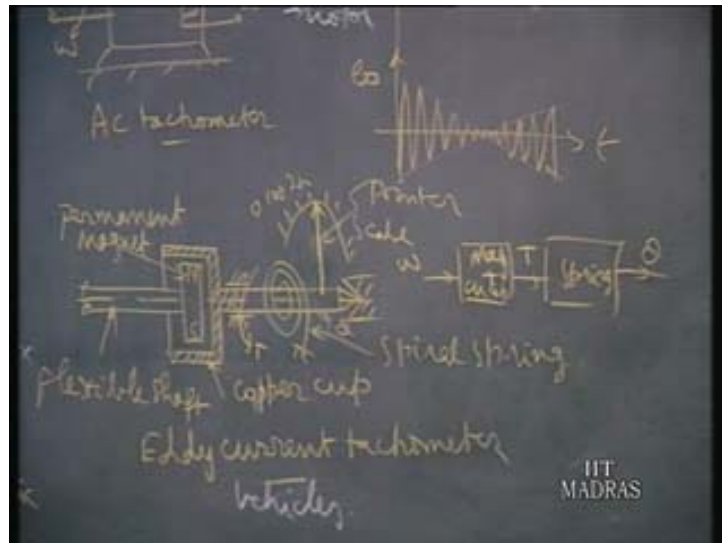 motor
ω
AC tachometer
e₀
t
permanent
magnet
Pointer
scale
ω
T
Spring
θ
T
Spiral Spring
flexible shaft
copper cup
Eddy current tachometer
Vehicles.
IIT
MADRAS